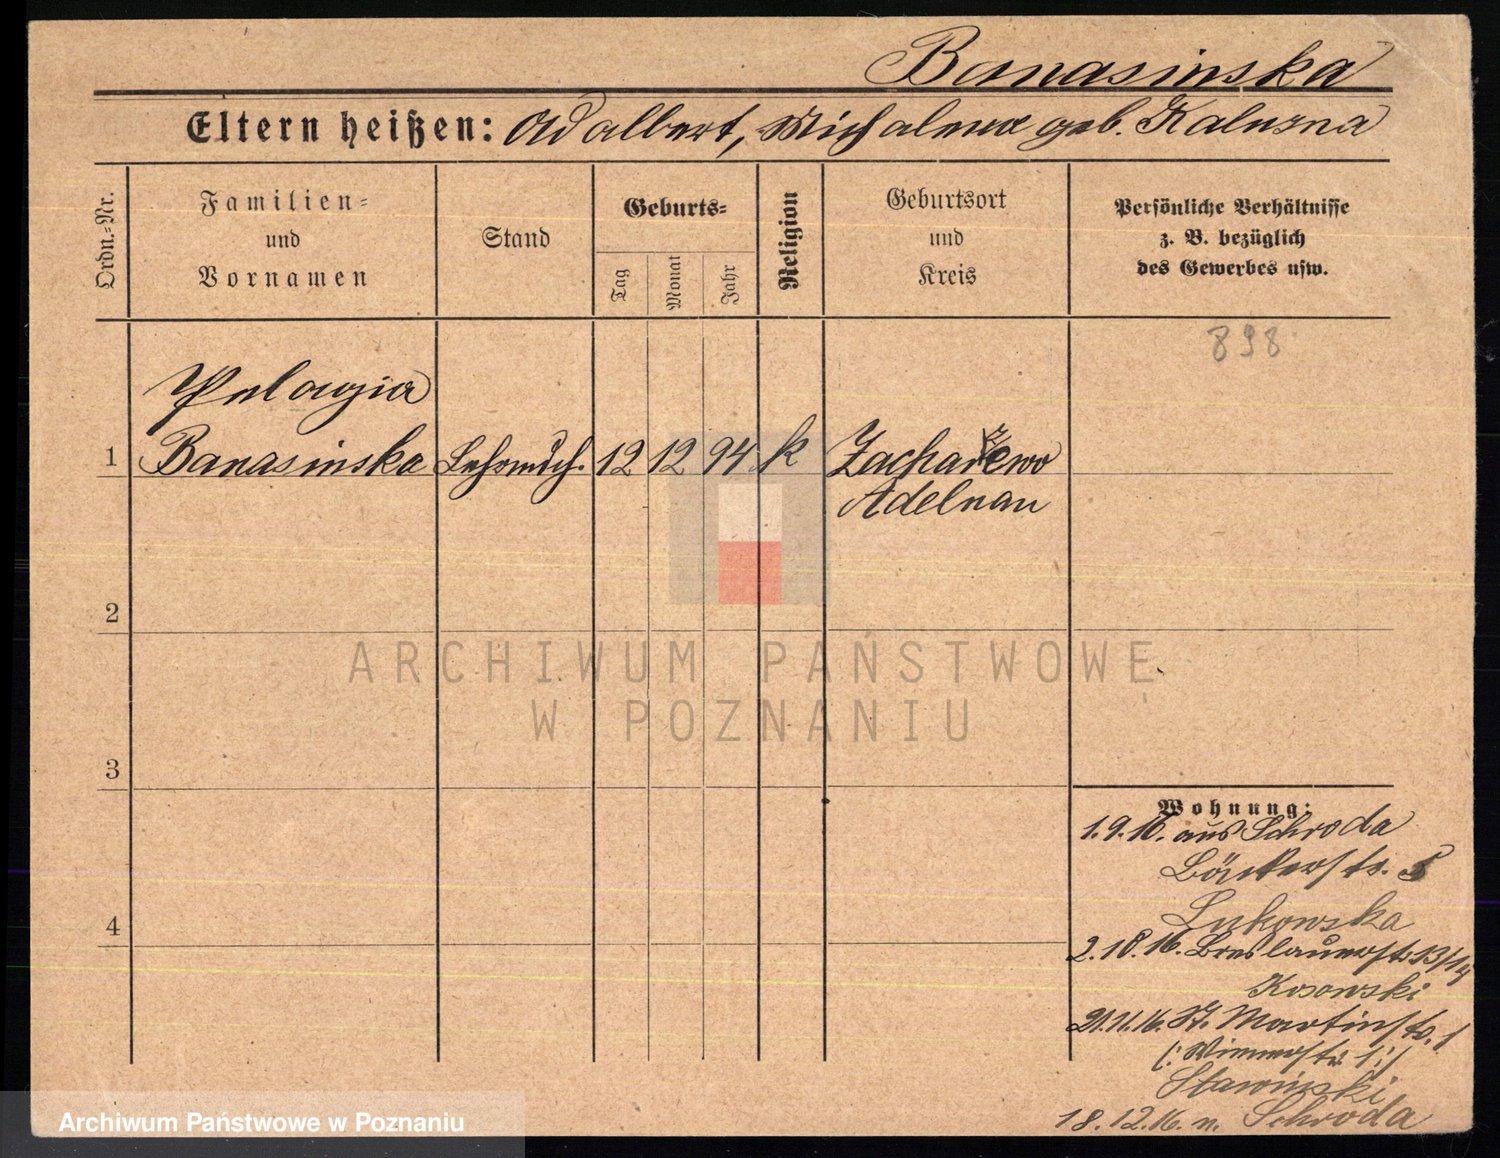 Banasinska
Eltern heißen: Adalbert, Michalina geb. Kaluzna
Ordn.=Nr.
Familien=
und
Vornamen
Stand
Geburts=
Tag
Monat
Jahr
Religion
Geburtsort
und
Kreis
Persönliche Verhältnisse
z. B. bezüglich
des Gewerbes usw.
898
Pelagia
1 Banasinska 12 12 94 k Zacharzewo
Adelnau
2
3
4
Wohnung:
1.9.16. aus Schroda
Bäckerstr. 5
Lukowska
2.10.16. Breslauerstr. 13/14
Kosowski
21.11.16. St. Martinstr. 1
Stawinski
18.12.16. n. Schroda
ARCHIWUM PAŃSTWOWE
W POZNANIU
Archiwum Państwowe w Poznaniu